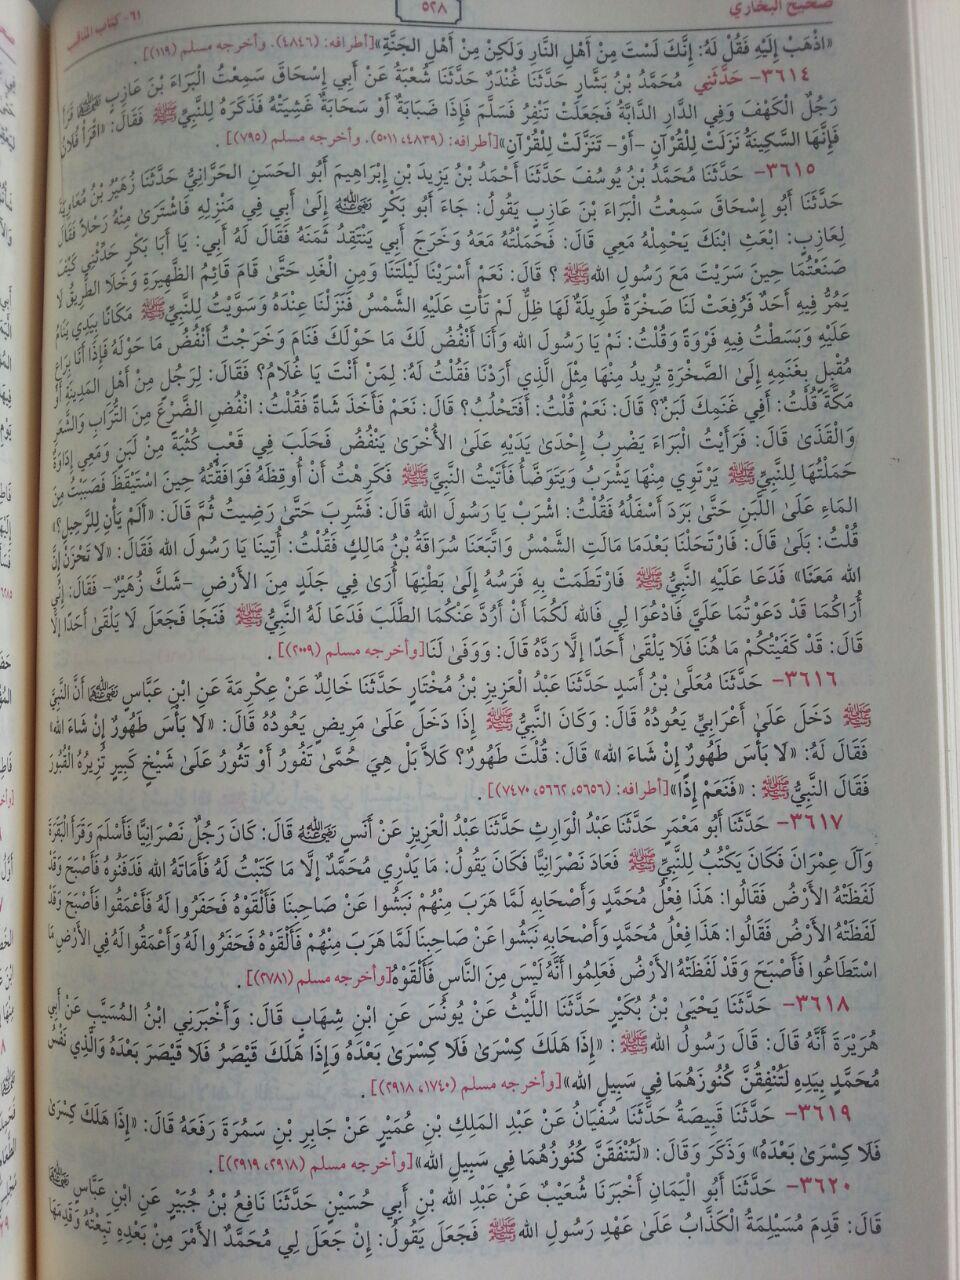 صحيح البخاري ٥٢٨ ٦١- كتاب المناقب
«اذْهَبْ إِلَيْهِ فَقُلْ لَهُ: إِنَّكَ لَسْتَ مِنْ أَهْلِ النَّارِ وَلَكِنْ مِنْ أَهْلِ الجَنَّةِ» [أطرافه: (٤٨٤٦). وأخرجه مسلم (١١٩)].
٣٦١٤- حَدَّثَنِي مُحَمَّدُ بْنُ بَشَّارٍ حَدَّثَنَا غُنْدَرٌ حَدَّثَنَا شُعْبَةُ عَنْ أَبِي إِسْحَاقَ سَمِعْتُ الْبَرَاءَ بْنَ عَازِبٍ ﷺ قَرَأَ
رَجُلٌ الْكَهْفَ وَفِي الدَّارِ الدَّابَّةُ فَجَعَلَتْ تَنْفِرُ فَسَلَّمَ فَإِذَا ضَبَابَةٌ أَوْ سَحَابَةٌ غَشِيَتْهُ فَذَكَرَهُ لِلنَّبِيِّ ﷺ فَقَالَ: «اقْرَأْ فُلَانُ
فَإِنَّهَا السَّكِينَةُ نَزَلَتْ لِلْقُرْآنِ -أَوْ- تَنَزَّلَتْ لِلْقُرْآنِ» [أطرافه: (٤٨٣٩، ٥٠١١). وأخرجه مسلم (٧٩٥)].
٣٦١٥- حَدَّثَنَا مُحَمَّدُ بْنُ يُوسُفَ حَدَّثَنَا أَحْمَدُ بْنُ يَزِيدَ بْنِ إِبْرَاهِيمَ أَبُو الحَسَنِ الحَرَّانِيُّ حَدَّثَنَا زُهَيْرُ بْنُ مُعَاوِيَةَ
حَدَّثَنَا أَبُو إِسْحَاقَ سَمِعْتُ الْبَرَاءَ بْنَ عَازِبٍ يَقُولُ: جَاءَ أَبُو بَكْرٍ رضي الله عنه إِلَىٰ أَبِي فِي مَنْزِلِهِ فَاشْتَرَىٰ مِنْهُ رَحْلًا فَقَالَ
لِعَازِبٍ: ابْعَثِ ابْنَكَ يَحْمِلْهُ مَعِي قَالَ: فَحَمَلْتُهُ مَعَهُ وَخَرَجَ أَبِي يَنْتَقِدُ ثَمَنَهُ فَقَالَ لَهُ أَبِي: يَا أَبَا بَكْرٍ حَدِّثْنِي كَيْفَ
صَنَعْتُمَا حِينَ سَرَيْتَ مَعَ رَسُولِ الله ﷺ؟ قَالَ: نَعَمْ أَسْرَيْنَا لَيْلَتَنَا وَمِنَ الْغَدِ حَتَّىٰ قَامَ قَائِمُ الظَّهِيرَةِ وَخَلَا الطَّرِيقُ لَا
يَمُرُّ فِيهِ أَحَدٌ فَرُفِعَتْ لَنَا صَخْرَةٌ طَوِيلَةٌ لَهَا ظِلٌّ لَمْ تَأْتِ عَلَيْهِ الشَّمْسُ فَنَزَلْنَا عِنْدَهُ وَسَوَّيْتُ لِلنَّبِيِّ ﷺ مَكَانًا بِيَدِي يَنَامُ
عَلَيْهِ وَبَسَطْتُ فِيهِ فَرْوَةً وَقُلْتُ: نَمْ يَا رَسُولَ الله وَأَنَا أَنْفُضُ لَكَ مَا حَوْلَكَ فَنَامَ وَخَرَجْتُ أَنْفُضُ مَا حَوْلَهُ فَإِذَا أَنَا بِرَاعٍ
مُقْبِلٍ بِغَنَمِهِ إِلَىٰ الصَّخْرَةِ يُرِيدُ مِنْهَا مِثْلَ الَّذِي أَرَدْنَا فَقُلْتُ لَهُ: لِمَنْ أَنْتَ يَا غُلَامُ؟ فَقَالَ: لِرَجُلٍ مِنْ أَهْلِ المَدِينَةِ أَوْ
مَكَّةَ قُلْتُ: أَفِي غَنَمِكَ لَبَنٌ؟ قَالَ: نَعَمْ قُلْتُ: أَفَتَحْلُبُ؟ قَالَ: نَعَمْ فَأَخَذَ شَاةً فَقُلْتُ: انْفُضِ الضَّرْعَ مِنَ التُّرَابِ وَالشَّعَرِ
وَالْقَذَىٰ قَالَ: فَرَأَيْتُ الْبَرَاءَ يَضْرِبُ إِحْدَىٰ يَدَيْهِ عَلَىٰ الأُخْرَىٰ يَنْفُضُ فَحَلَبَ فِي قَعْبٍ كُثْبَةً مِنْ لَبَنٍ وَمَعِي إِدَاوَةٌ
حَمَلْتُهَا لِلنَّبِيِّ ﷺ يَرْتَوِي مِنْهَا يَشْرَبُ وَيَتَوَضَّأُ فَأَتَيْتُ النَّبِيَّ ﷺ فَكَرِهْتُ أَنْ أُوقِظَهُ فَوَافَقْتُهُ حِينَ اسْتَيْقَظَ فَصَبَبْتُ مِنَ
المَاءِ عَلَىٰ اللَّبَنِ حَتَّىٰ بَرَدَ أَسْفَلُهُ فَقُلْتُ: اشْرَبْ يَا رَسُولَ الله قَالَ: فَشَرِبَ حَتَّىٰ رَضِيتُ ثُمَّ قَالَ: «أَلَمْ يَأْنِ لِلرَّحِيلِ؟»
قُلْتُ: بَلَىٰ قَالَ: فَارْتَحَلْنَا بَعْدَمَا مَالَتِ الشَّمْسُ وَاتَّبَعَنَا سُرَاقَةُ بْنُ مَالِكٍ فَقُلْتُ: أُتِينَا يَا رَسُولَ الله فَقَالَ: «لَا تَحْزَنْ إِنَّ
الله مَعَنَا» فَدَعَا عَلَيْهِ النَّبِيُّ ﷺ فَارْتَطَمَتْ بِهِ فَرَسُهُ إِلَىٰ بَطْنِهَا أُرَىٰ فِي جَلَدٍ مِنَ الأَرْضِ -شَكَّ زُهَيْرٌ- فَقَالَ: إِنِّي
أُرَاكُمَا قَدْ دَعَوْتُمَا عَلَيَّ فَادْعُوَا لِي فَالله لَكُمَا أَنْ أَرُدَّ عَنْكُمَا الطَّلَبَ فَدَعَا لَهُ النَّبِيُّ ﷺ فَنَجَا فَجَعَلَ لَا يَلْقَىٰ أَحَدًا إِلَّا
قَالَ: قَدْ كَفَيْتُكُمْ مَا هُنَا فَلَا يَلْقَىٰ أَحَدًا إِلَّا رَدَّهُ قَالَ: وَوَفَىٰ لَنَا [وأخرجه مسلم (٢٠٠٩)].
٣٦١٦- حَدَّثَنَا مُعَلَّىٰ بْنُ أَسَدٍ حَدَّثَنَا عَبْدُ الْعَزِيزِ بْنُ مُخْتَارٍ حَدَّثَنَا خَالِدٌ عَنْ عِكْرِمَةَ عَنِ ابْنِ عَبَّاسٍ رضي الله عنه أَنَّ النَّبِيَّ
ﷺ دَخَلَ عَلَىٰ أَعْرَابِيٍّ يَعُودُهُ قَالَ: وَكَانَ النَّبِيُّ ﷺ إِذَا دَخَلَ عَلَىٰ مَرِيضٍ يَعُودُهُ قَالَ: «لَا بَأْسَ طَهُورٌ إِنْ شَاءَ الله»
فَقَالَ لَهُ: «لَا بَأْسَ طَهُورٌ إِنْ شَاءَ الله» قَالَ: قُلْتَ طَهُورٌ؟ كَلَّا بَلْ هِيَ حُمَّىٰ تَفُورُ أَوْ تَثُورُ عَلَىٰ شَيْخٍ كَبِيرٍ تُزِيرُهُ الْقُبُورَ
فَقَالَ النَّبِيُّ ﷺ: «فَنَعَمْ إِذًا» [أطرافه: (٥٦٥٦، ٥٦٦٢، ٧٤٧٠)].
٣٦١٧- حَدَّثَنَا أَبُو مَعْمَرٍ حَدَّثَنَا عَبْدُ الْوَارِثِ حَدَّثَنَا عَبْدُ الْعَزِيزِ عَنْ أَنَسٍ رضي الله عنه قَالَ: كَانَ رَجُلٌ نَصْرَانِيًّا فَأَسْلَمَ وَقَرَأَ الْبَقَرَةَ
وَآلَ عِمْرَانَ فَكَانَ يَكْتُبُ لِلنَّبِيِّ ﷺ فَعَادَ نَصْرَانِيًّا فَكَانَ يَقُولُ: مَا يَدْرِي مُحَمَّدٌ إِلَّا مَا كَتَبْتُ لَهُ فَأَمَاتَهُ الله فَدَفَنُوهُ فَأَصْبَحَ وَقَدْ
لَفَظَتْهُ الأَرْضُ فَقَالُوا: هَذَا فِعْلُ مُحَمَّدٍ وَأَصْحَابِهِ لَمَّا هَرَبَ مِنْهُمْ نَبَشُوا عَنْ صَاحِبِنَا فَأَلْقَوْهُ فَحَفَرُوا لَهُ فَأَعْمَقُوا فَأَصْبَحَ وَقَدْ
لَفَظَتْهُ الأَرْضُ فَقَالُوا: هَذَا فِعْلُ مُحَمَّدٍ وَأَصْحَابِهِ نَبَشُوا عَنْ صَاحِبِنَا لَمَّا هَرَبَ مِنْهُمْ فَأَلْقَوْهُ فَحَفَرُوا لَهُ وَأَعْمَقُوا لَهُ فِي الأَرْضِ مَا
اسْتَطَاعُوا فَأَصْبَحَ وَقَدْ لَفَظَتْهُ الأَرْضُ فَعَلِمُوا أَنَّهُ لَيْسَ مِنَ النَّاسِ فَأَلْقَوْهُ [وأخرجه مسلم (٢٧٨١)].
٣٦١٨- حَدَّثَنَا يَحْيَىٰ بْنُ بُكَيْرٍ حَدَّثَنَا اللَّيْثُ عَنْ يُونُسَ عَنِ ابْنِ شِهَابٍ قَالَ: وَأَخْبَرَنِي ابْنُ المُسَيَّبِ عَنْ أَبِي
هُرَيْرَةَ أَنَّهُ قَالَ: قَالَ رَسُولُ الله ﷺ: «إِذَا هَلَكَ كِسْرَىٰ فَلَا كِسْرَىٰ بَعْدَهُ وَإِذَا هَلَكَ قَيْصَرُ فَلَا قَيْصَرَ بَعْدَهُ وَالَّذِي نَفْسُ
مُحَمَّدٍ بِيَدِهِ لَتُنْفِقُنَّ كُنُوزَهُمَا فِي سَبِيلِ الله» [وأخرجه مسلم (١٧٤٠، ٢٩١٨)].
٣٦١٩- حَدَّثَنَا قَبِيصَةُ حَدَّثَنَا سُفْيَانُ عَنْ عَبْدِ المَلِكِ بْنِ عُمَيْرٍ عَنْ جَابِرِ بْنِ سَمُرَةَ رَفَعَهُ قَالَ: «إِذَا هَلَكَ كِسْرَىٰ
فَلَا كِسْرَىٰ بَعْدَهُ» وَذَكَرَ وَقَالَ: «لَتُنْفَقَنَّ كُنُوزُهُمَا فِي سَبِيلِ الله» [وأخرجه مسلم (٢٩١٨، ٢٩١٩)].
٣٦٢٠- حَدَّثَنَا أَبُو الْيَمَانِ أَخْبَرَنَا شُعَيْبٌ عَنْ عَبْدِ الله بْنِ أَبِي حُسَيْنٍ حَدَّثَنَا نَافِعُ بْنُ جُبَيْرٍ عَنِ ابْنِ عَبَّاسٍ رضي الله عنه
قَالَ: قَدِمَ مُسَيْلِمَةُ الْكَذَّابُ عَلَىٰ عَهْدِ رَسُولِ الله ﷺ فَجَعَلَ يَقُولُ: إِنْ جَعَلَ لِي مُحَمَّدٌ الأَمْرَ مِنْ بَعْدِهِ تَبِعْتُهُ وَقَدِمَهَا